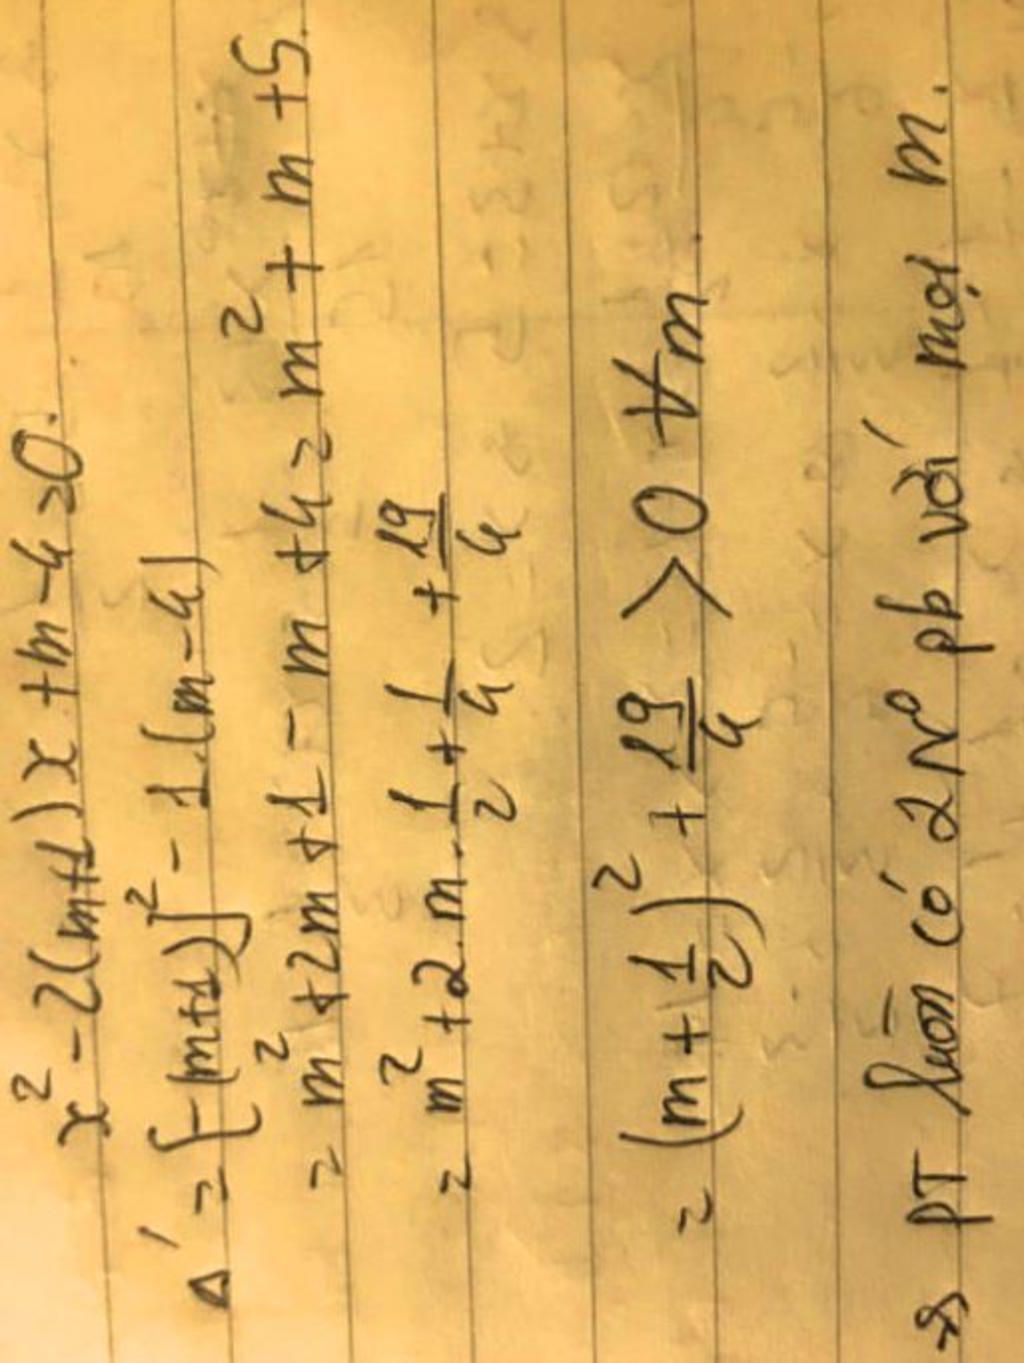 x² - 2(m+1)x + m - 4 = 0.
Δ' = [-(m+1)]² - 1.(m-4)
= m² + 2m + 1 - m + 4 = m² + m + 5.
= m² + 2.m.1/2 + 1/4 + 19/4
= (m + 1/2)² + 19/4 > 0 ∀m
→ PT luôn có 2N⁰ pb với mọi m.